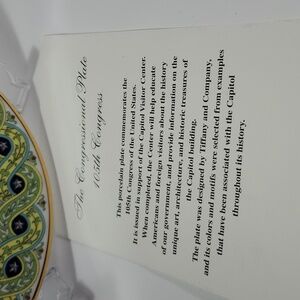 The Congressional Plate
105th Congress
This porcelain plate commemorates the
105th Congress of the United States.
It is issued in support of the Capitol Visitor Center.
When completed, the Center will help educate
Americans and foreign visitors about the history
of our government, and provide information on the
unique art, architecture, and historic treasures of
the Capitol building.
The plate was designed by Tiffany and Company,
and its colors and motifs were selected from examples
that have been associated with the Capitol
throughout its history.